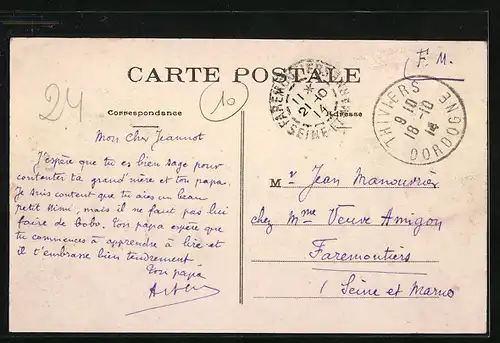 F. M.
CARTE POSTALE
24
10
Correspondance
Adresse
FAREMOUTIERS
11 *
2 -10
14
SEINE
THIVIERS
9 10
18 -10
14
DORDOGNE
Mon Cher Jeannot
J'espère que tu es bien sage pour
contenter ta grand'mère et ton papa.
Je suis content que tu aies un beau
petit Mimi, mais il ne faut pas lui
faire de bobo. Ton papa espère que
tu commences à apprendre à lire et
il t'embrasse bien tendrement
Ton papa
Mr Jean Manouvrier
chez Mme Veuve Amigon
Faremoutiers
(Seine et Marne